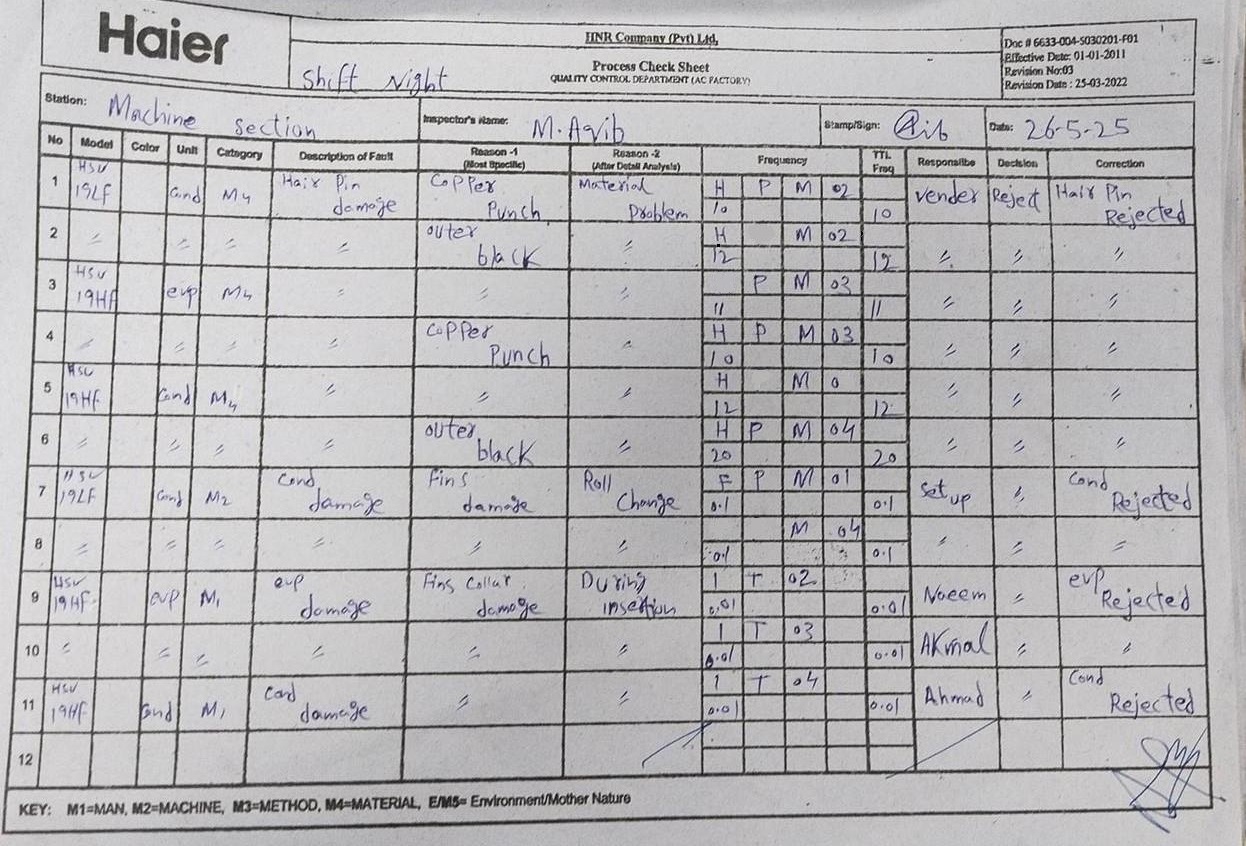 Haier
HNR Company (Pvt) Ltd,
Process Check Sheet
QUALITY CONTROL DEPARTMENT (AC FACTORY)
Shift Night
Doc # 6633-004-5030201-F01
Effective Date: 01-01-2011
Revision No:03
Revision Date : 25-03-2022
Station: Machine section Inspector's Name: M.Aqib Stamp/Sign: Date: 26-5-25
No Model Color Unit Category Description of Fault Reason -1 (Most Specific) Reason -2 (After Detail Analysis) Frequency TTL Freq Responsilbe Decision Correction
1 HSU 19LF Cond M4 Hair Pin damage Copper Punch Material Problem H P M 02 10 10 vender Reject Hair Pin Rejected
2 〃 〃 〃 〃 outer black 〃 H M 02 12 12 〃 〃 〃
3 HSU 19HF evp M4 〃 〃 〃 P M 03 11 11 〃 〃 〃
4 〃 〃 〃 〃 Copper Punch 〃 H P M 03 10 10 〃 〃 〃
5 HSU 19HF Cond M4 〃 〃 〃 H M 0 12 12 〃 〃 〃
6 〃 〃 〃 〃 outer black 〃 H P M 04 20 20 〃 〃 〃
7 HSU 19LF Cond M2 Cond damage Fins damage Roll Change F P M 01 0.1 0.1 Set up 〃 Cond Rejected
8 〃 〃 〃 〃 〃 〃 M 04 0.1 0.1 〃 〃 〃
9 HSU 19HF evp M1 evp damage Fins Collar damage During insertion 1 T 02 0.01 0.01 Naeem 〃 evp Rejected
10 〃 〃 〃 〃 〃 〃 1 T 03 0.01 0.01 AKmal 〃 〃
11 HSU 19HF Cond M1 Cond damage 〃 〃 1 T 04 0.01 0.01 Ahmad 〃 Cond Rejected
12
KEY: M1=MAN, M2=MACHINE, M3=METHOD, M4=MATERIAL, E/M5= Environment/Mother Nature